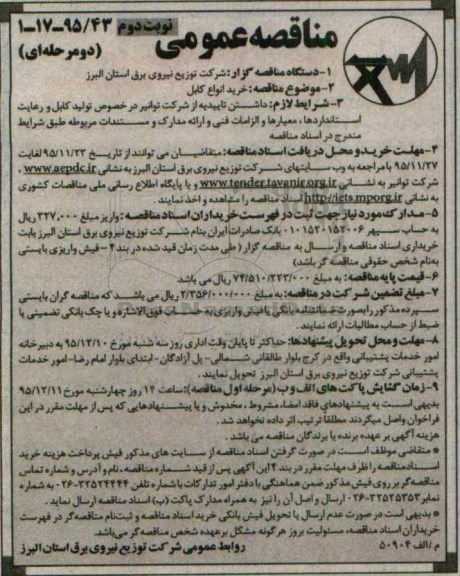 نوبت دوم ۹۵/۴۳-۱۷-۱
مناقصه عمومی (دو مرحله‌ای)
۱-دستگاه مناقصه گزار: شرکت توزیع نیروی برق استان البرز
۲-موضوع مناقصه: خرید انواع کابل
۳-شرایط لازم: داشتن تاییدیه از شرکت توانیر در خصوص تولید کابل و رعایت
استانداردها، معیارها و الزامات فنی و ارائه مدارک و مستندات مربوطه طبق شرایط
مندرج در اسناد مناقصه
۴-مهلت خرید و محل دریافت اسناد مناقصه: متقاضیان می توانند از تاریخ ۹۵/۱۱/۲۳ لغایت
۹۵/۱۱/۲۷ با مراجعه به وب سایتهای شرکت توزیع نیروی برق استان البرز به نشانی www.aepdc.ir،
شرکت توانیر به نشانی www.tender.tavanir.org.ir و یا پایگاه اطلاع رسانی ملی مناقصات کشوری
به نشانی http://iets.mporg.ir اسناد مناقصه را مشاهده و اخذ نمایند.
۵-مدارک مورد نیاز جهت ثبت در فهرست خریداران اسناد مناقصه: واریز مبلغ ۳۲۷,۰۰۰ ریال
به حساب سپهر ۰۱۰۱۵۲۰۱۵۲۰۰۶ بانک صادرات ایران بنام شرکت توزیع نیروی برق استان البرز بابت
خریداری اسناد مناقصه و ارسال به مناقصه گزار (طی مدت زمان قید شده در بند ۴-فیش واریزی بایستی
به‌نام شخص حقوقی مناقصه گر باشد)
۶-قیمت پایه مناقصه: به مبلغ ۷۴/۵۱۰/۲۲۳/۰۰۰ ریال می باشد
۷-مبلغ تضمین شرکت در مناقصه: به مبلغ ۲/۳۵۶/۰۰۰/۰۰۰ ریال می باشد که مناقصه گران بایستی
سپرده مذکور را بصورت ضمانتنامه بانکی یا فیش واریزی به حساب فوق‌الاشاره و یا چک بانکی تضمینی یا
ضبط از حساب مطالبات ارائه نمایند.
۸-مهلت و محل تحویل پیشنهادها: حداکثر تا پایان وقت اداری روز سه شنبه مورخ ۹۵/۱۲/۱۰ به دبیرخانه
امور خدمات پشتیبانی واقع در کرج بلوار طالقانی شمالی-پل آزادگان-ابتدای بلوار امام رضا-امور خدمات
پشتیبانی شرکت توزیع نیروی برق استان البرز تحویل نمایند.
۹-زمان گشایش پاکت های الف و ب (مرحله اول مناقصه): ساعت ۱۴ روز چهارشنبه مورخ ۹۵/۱۲/۱۱
بدیهی است به پیشنهادهای فاقد امضاء، مشروط، مخدوش و یا پیشنهادهایی که پس از مهلت مقرر در این
فراخوان واصل میگردند مطلقا ترتیب اثر داده نخواهد شد.
هزینه آگهی بر عهده برنده یا برندگان مناقصه می باشد.
* متقاضی موظف است در صورت گرفتن اسناد مناقصه از سایت های مذکور فیش پرداخت هزینه خرید
اسناد مناقصه را ظرف مهلت مقرر در بند ۴ این آگهی پس از قید شماره مناقصه، نام و آدرس و شماره تماس
مناقصه‌گر بر روی فیش مذکور ضمن هماهنگی با دفتر امور تدارکات با شماره تلفن ۳۲۵۲۴۴۴۴-۰۲۶ به شماره
نمابر ۳۲۵۲۵۳۵۳-۰۲۶ ارسال و اصل آن را نیز به همراه مدارک پاکت (ب) اسناد مناقصه ارسال نماید.
* بدیهی است در صورت عدم ارسال یا تحویل فیش بانکی خرید اسناد مناقصه و ثبت‌نام مناقصه‌گر در فهرست
خریداران اسناد مناقصه، مسئولیت بروز هرگونه مشکل بر عهده شخص مناقصه گر می‌باشد.
م/الف ۵۰۹۰۴ روابط عمومی شرکت توزیع نیروی برق استان البرز